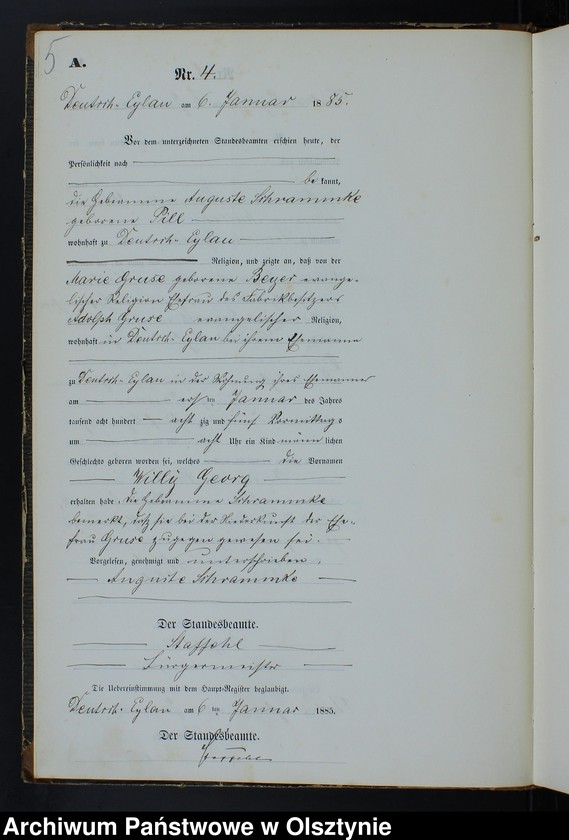 5
A.
Nr. 4.
Deutsch-Eylau am 6. Januar 1885.
Vor dem unterzeichneten Standesbeamten erschien heute, der
Persönlichkeit nach
be kannt,
die Hebeamme Auguste Schrammke
geborene Pill
wohnhaft zu Deutsch-Eylau
Religion, und zeigte an, daß von der
Marie Gruse geborene Beyer evange-
lischer Religion Ehefrau des Fabrikbesitzers
Adolph Gruse evangelischer Religion,
wohnhaft in Deutsch-Eylau bei ihrem Ehemanne
zu Deutsch-Eylau in der Wohnung ihres Ehemannes
am ersten Januar des Jahres
tausend acht hundert acht zig und fünf Vormittags
um acht Uhr ein Kind männlichen
Geschlechts geboren worden sei, welches die Vornamen
Willy Georg
erhalten habe. Die Hebeamme Schrammke
bemerkt, daß sie bei der Niederkunft der Ehe-
frau Gruse zugegen gewesen sei.
Vorgelesen, genehmigt und unterschrieben
Auguste Schrammke
Der Standesbeamte.
Staffehl
Bürgermeister
Die Uebereinstimmung mit dem Haupt-Register beglaubigt.
Deutsch-Eylau am 6ten Januar 1885.
Der Standesbeamte.
Archiwum Państwowe w Olsztynie